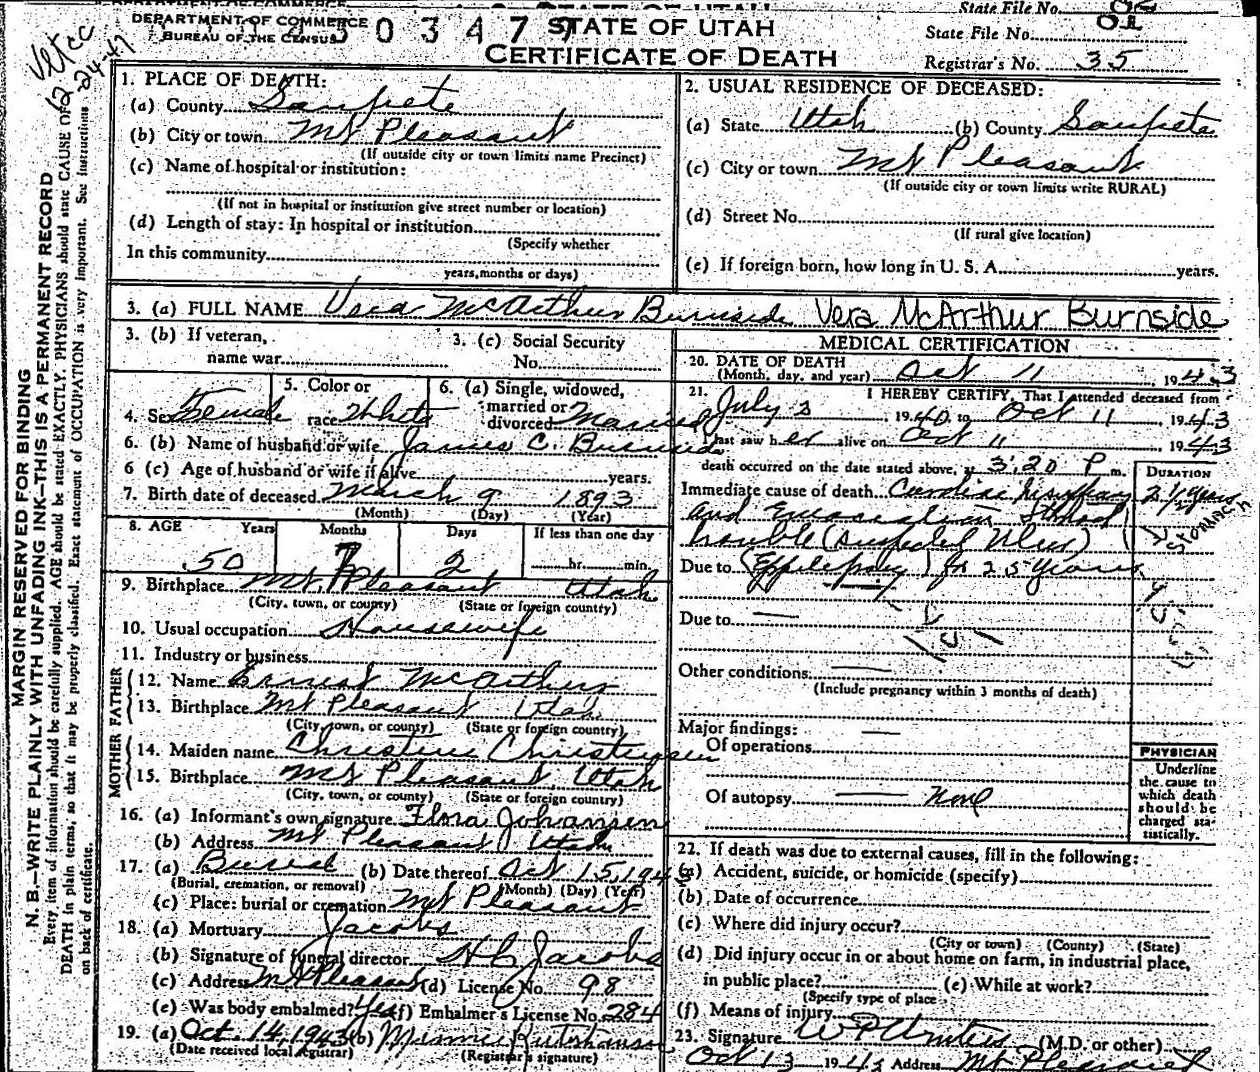 DEPARTMENT OF COMMERCE
BUREAU OF THE CENSUS
0347
STATE OF UTAH
CERTIFICATE OF DEATH
State File No.
State File No.
Registrar's No. 35
MARGIN RESERVED FOR BINDING
N. B.—WRITE PLAINLY WITH UNFADING INK—THIS IS A PERMANENT RECORD
Every item of information should be carefully supplied. AGE should be stated EXACTLY. PHYSICIANS should state CAUSE OF
DEATH in plain terms, so that it may be properly classified. Exact statement of OCCUPATION is very important. See instructions
on back of certificate.
1. PLACE OF DEATH:
(a) County Sanpete
(b) City or town Mt Pleasant
(If outside city or town limits name Precinct)
(c) Name of hospital or institution:
(If not in hospital or institution give street number or location)
(d) Length of stay: In hospital or institution
(Specify whether
In this community
years, months or days)
2. USUAL RESIDENCE OF DECEASED:
(a) State Utah (b) County Sanpete
(c) City or town Mt Pleasant
(If outside city or town limits write RURAL)
(d) Street No.
(If rural give location)
(e) If foreign born, how long in U. S. A. years.
3. (a) FULL NAME Vera McArthur Burnside Vera McArthur Burnside
3. (b) If veteran,
name war
3. (c) Social Security
No.
4. Sex Female
5. Color or
race White
6. (a) Single, widowed,
married or
divorced Married
6. (b) Name of husband or wife James C. Burnside
6 (c) Age of husband or wife if alive years.
7. Birth date of deceased March 9 1893
(Month) (Day) (Year)
8. AGE Years Months Days If less than one day
50 7 2 hr. min.
9. Birthplace Mt. Pleasant Utah
(City, town, or county) (State or foreign country)
10. Usual occupation Housewife
11. Industry or business
MOTHER FATHER
12. Name Ernest McArthur
13. Birthplace Mt Pleasant Utah
(City, town, or county) (State or foreign country)
14. Maiden name Christine Christensen
15. Birthplace Mt Pleasant, Utah
(City, town, or county) (State or foreign country)
16. (a) Informant's own signature Flora Johansen
(b) Address Mt Pleasant Utah
17. (a) Burial (b) Date thereof Oct 15, 1943
(Burial, cremation, or removal) (Month) (Day) (Year)
(c) Place: burial or cremation Mt Pleasant
18. (a) Mortuary Jacobs
(b) Signature of funeral director H C Jacobs
(c) Address Mt Pleasant (d) License No. 98
(e) Was body embalmed? Yes (f) Embalmer's License No. 284
19. (a) Oct. 14, 1943 (b) Minnie
(Date received local registrar) (Registrar's signature)
MEDICAL CERTIFICATION
20. DATE OF DEATH
(Month, day, and year) Oct 11, 1943
21. I HEREBY CERTIFY, That I attended deceased from
July 2 1940 to Oct 11, 1943
I last saw her alive on Oct 11 1943
death occurred on the date stated above, at 3:20 P m.
DURATION
Immediate cause of death
and Emaciation
trouble (suspected Ulcer)
Stomach
Due to (Epplepsy) for 25 Years
Due to —
Other conditions: —
(Include pregnancy within 3 months of death)
Major findings: —
Of operations
Of autopsy — None
PHYSICIAN
Underline
the cause to
which death
should be
charged sta-
tistically.
22. If death was due to external causes, fill in the following:
(a) Accident, suicide, or homicide (specify)
(b) Date of occurrence
(c) Where did injury occur?
(City or town) (County) (State)
(d) Did injury occur in or about home on farm, in industrial place,
in public place? (e) While at work?
(Specify type of place
(f) Means of injury
23. Signature (M.D. or other)
Oct 13 1943 Address Mt Pleasant